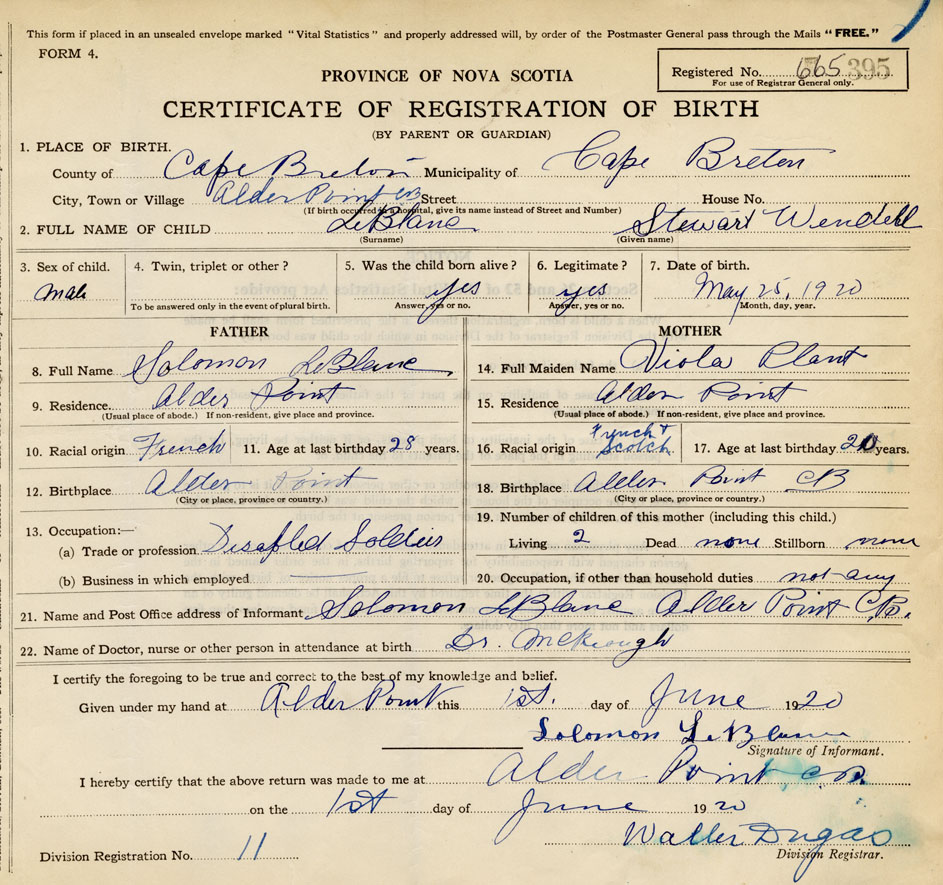 This form if placed in an unsealed envelope marked "Vital Statistics" and properly addressed will, by order of the Postmaster General pass through the Mails "FREE."
FORM 4.
PROVINCE OF NOVA SCOTIA
Registered No. 665 395
For use of Registrar General only.
CERTIFICATE OF REGISTRATION OF BIRTH
(BY PARENT OR GUARDIAN)
1. PLACE OF BIRTH.
County of Cape Breton Municipality of Cape Breton
City, Town or Village Alder Point CB Street House No.
(If birth occurred in a hospital, give its name instead of Street and Number)
2. FULL NAME OF CHILD LeBlanc Stewart Wendell
(Surname) (Given name)
3. Sex of child. 4. Twin, triplet or other? 5. Was the child born alive? 6. Legitimate? 7. Date of birth.
Male yes yes May 25, 1920
To be answered only in the event of plural birth. Answer, yes or no. Answer, yes or no. Month, day, year.
FATHER MOTHER
8. Full Name Solomon LeBlanc 14. Full Maiden Name Viola Plant
9. Residence. Alder Point 15. Residence Alder Point
(Usual place of abode.) If non-resident, give place and province. (Usual place of abode.) If non-resident, give place and province.
10. Racial origin French 11. Age at last birthday 28 years. 16. Racial origin French & Scotch 17. Age at last birthday 20 years.
12. Birthplace Alder Point 18. Birthplace Alder Point CB
(City or place, province or country.) (City or place, province or country.)
13. Occupation:— 19. Number of children of this mother (including this child.)
(a) Trade or profession Disabled Soldier Living 2 Dead none Stillborn none
(b) Business in which employed 20. Occupation, if other than household duties not any
21. Name and Post Office address of Informant Solomon LeBlanc Alder Point C.B.
22. Name of Doctor, nurse or other person in attendance at birth Dr. McKeough
I certify the foregoing to be true and correct to the best of my knowledge and belief.
Given under my hand at Alder Point this 1st. day of June 1920
Solomon LeBlanc
Signature of Informant.
I hereby certify that the above return was made to me at Alder Point C.B.
on the 1st day of June 1920
Walter Dugas
Division Registration No. 11 Division Registrar.